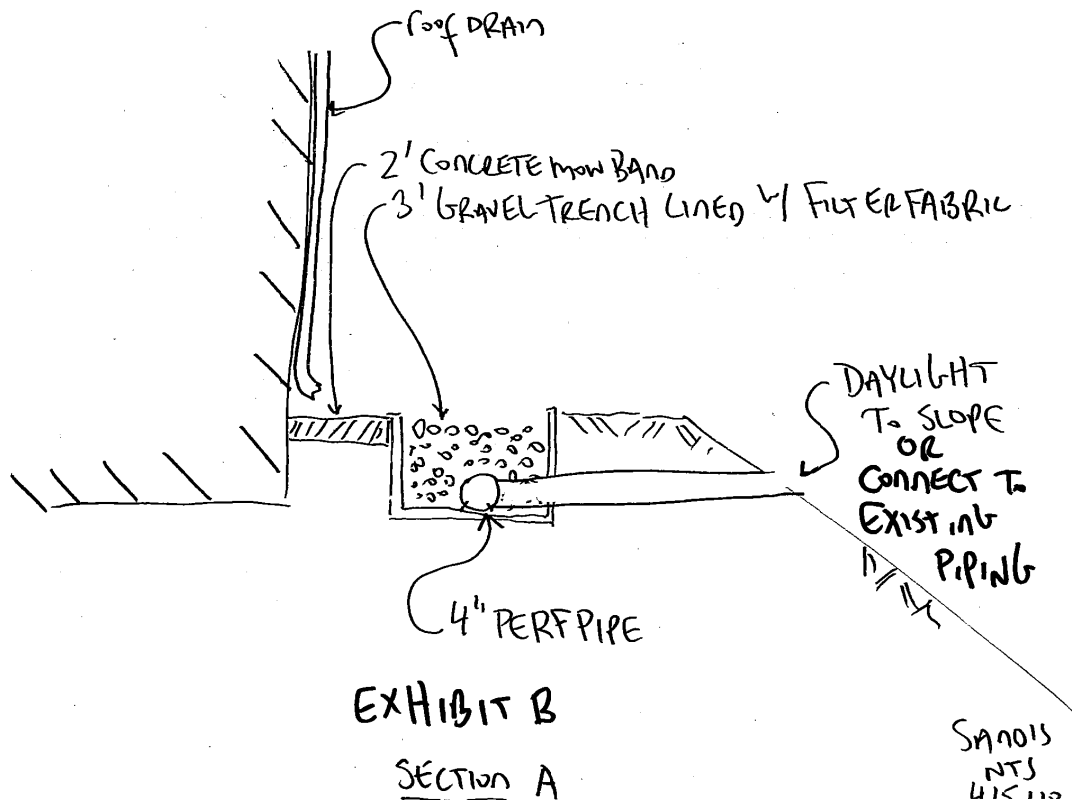 roof DRAIN
2' CONCRETE MOW BAND
3' GRAVEL TRENCH LINED W/ FILTER FABRIC
DAYLIGHT
TO SLOPE
OR
CONNECT TO
EXISTING
PIPING
4" PERF PIPE
EXHIBIT B
SECTION A
SANDIS
NTS